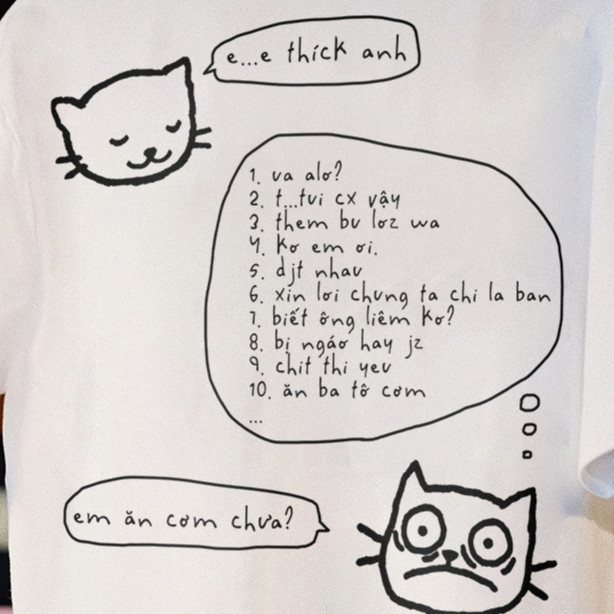 e...e thíck anh
1. va alo?
2. t...tui cx vậy
3. them bu loz wa
4. ko em ơi.
5. djt nhau
6. xin loi chung ta chi la ban
7. biết ông liêm ko?
8. bị ngáo hay jz
9. chit thi yeu
10. ăn ba tô cơm
...
em ăn cơm chưa?